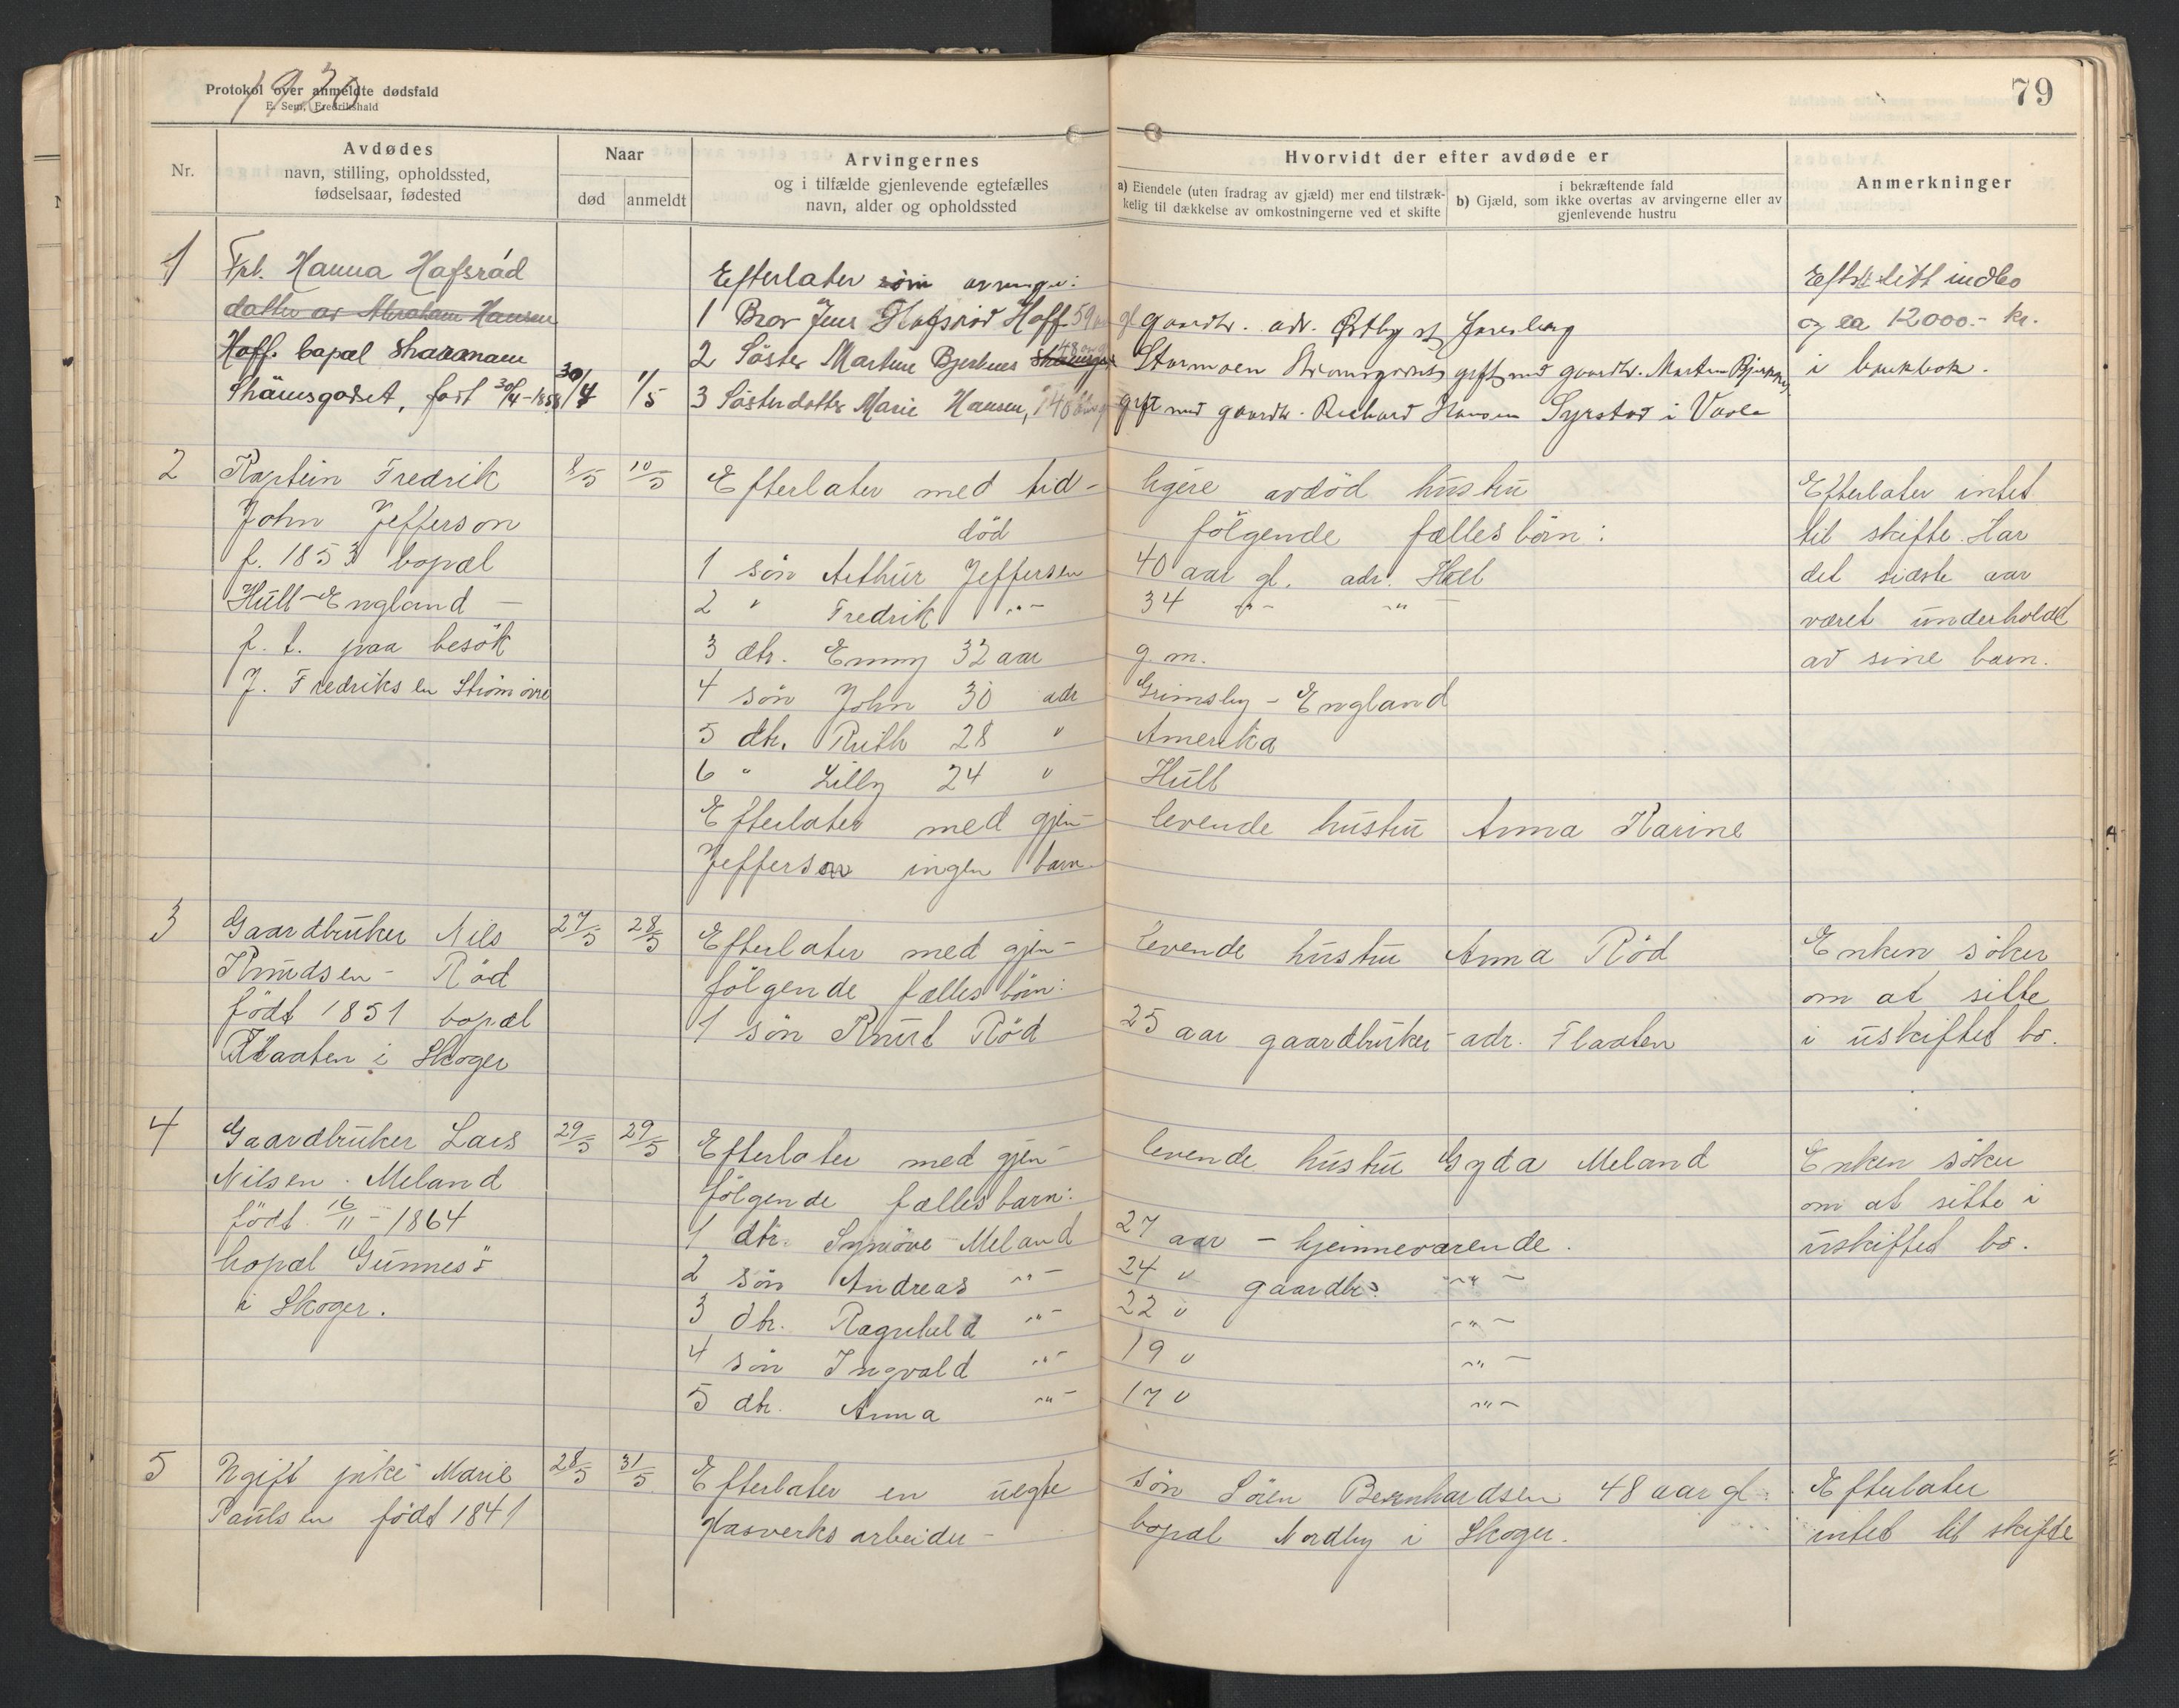 1920
Protokol over anmeldte dødsfald
E. Sem, Fredrikshald
79
Nr.
Avdødes
navn, stilling, opholdssted,
fødselsaar, fødested
Naar
død
anmeldt
Arvingernes
og i tilfælde gjenlevende egtefælles
navn, alder og opholdssted
Hvorvidt der efter avdøde er
a) Eiendele (uten fradrag av gjæld) mer end tilstræk-
kelig til dækkelse av omkostningerne ved et skifte
i bekræftende fald
b) Gjæld, som ikke overtas av arvingerne eller av
gjenlevende hustru
Anmerkninger
1 Frk. Hanna Hafsrød
datter av Abraham Hansen
Hoff. bopæl
født 30/4-1858 30/4 1/5
Efterlater som arvinger:
1 Bror Jens Hafsrød Hoff 59 aar gl gaardbr. adr. Østby st. Jarlsberg
2 Søster Martine Bjerknes 48 Stormoen gift med gaardbr. Martin
3 Søsterdatter Marie Hansen, gift med gaardbr. Richard Hansen i Vaale
litt indbo
og ca 12000.- kr.
i bankbok.
2 Kaptein Fredrik 8/5 10/5
John Jefferson
f. 1853 bopæl
Hull-England -
p. t. paa besøk
J. Fredriksen
Efterlater med tid- ligere avdød hustru
død følgende fællesbørn:
1 søn Arthur Jeffersen 40 aar gl. adr. Hull
2 " Fredrik -"- 34 -"- -"-
3 dtr. Emmy 32 aar g. m.
4 søn John 30 adr Grimsby - England
5 dtr. Ruth 28 " Amerika
6 " Lilly 24 " Hull
Efterlater med gjen- levende hustru Anna Karine
Jefferson ingen barn.
Efterlater intet
til skifte. Har
det sidste aar
været underholdt
av sine barn.
3 Gaardbruker Nils 27/5 28/5
Knudsen - Rød
født 1851 bopæl
Flaaten i Skoger
Efterlater med gjen- levende hustru Anna Rød
følgende fællesbørn:
1 søn Knut Rød 25 aar gaardbruker - adr. Flaaten
Enken søker
om at sitte
i uskiftet bo.
4 Gaardbruker Lars 29/5 29/5
Nilsen Meland
født 16/11 - 1864
bopæl Gunnesø
i Skoger.
Efterlater med gjen- levende hustru Gyda Meland
følgende fællesbarn:
1 dtr. Synnøve Meland 27 aar - hjemmeværende.
2 søn Andreas -"- 24 " gaardbr. -"-
3 dtr. Ragnhild -"- 22 " -"-
4 søn Ingvald -"- 19 " -"-
5 dtr. Anna -"- 17 " -"-
Enken søker
om at sitte i
uskiftet bo.
5 Ugift pike Marie 28/5 31/5
Paulsen født 1841
Efterlater en uegte søn Søren Bernhardsen 48 aar gl.
glasverksarbeider - bopæl Nordby i Skoger.
Efterlater
intet til skifte